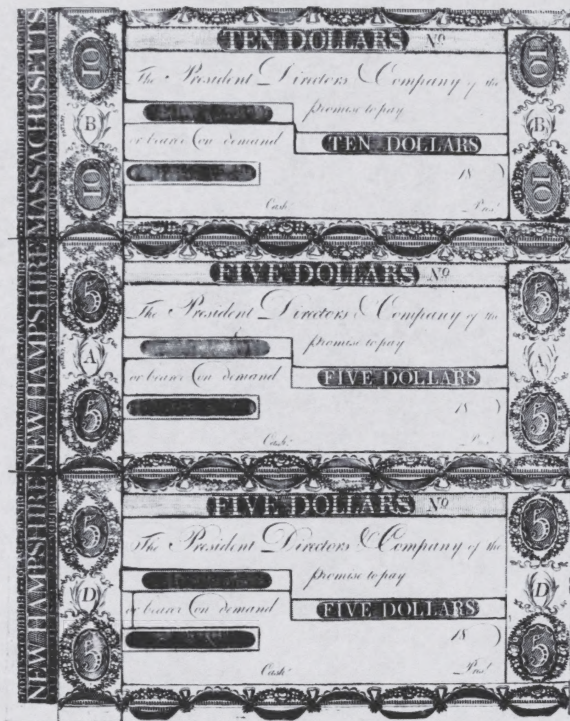 MASSACHUSETTS
TEN DOLLARS Nº
10 10
The President Directors & Company of the
promise to pay
B B
or bearer on demand TEN DOLLARS
10 10
18
Cash.r Pres.t
NEW HAMPSHIRE
FIVE DOLLARS Nº
5 5
The President Directors & Company of the
promise to pay
A A
or bearer on demand FIVE DOLLARS
5 5
18
Cash.r Pres.t
NEW HAMPSHIRE
FIVE DOLLARS Nº
5 5
The President Directors & Company of the
promise to pay
D D
or bearer on demand FIVE DOLLARS
5 5
18
Cash.r Pres.t